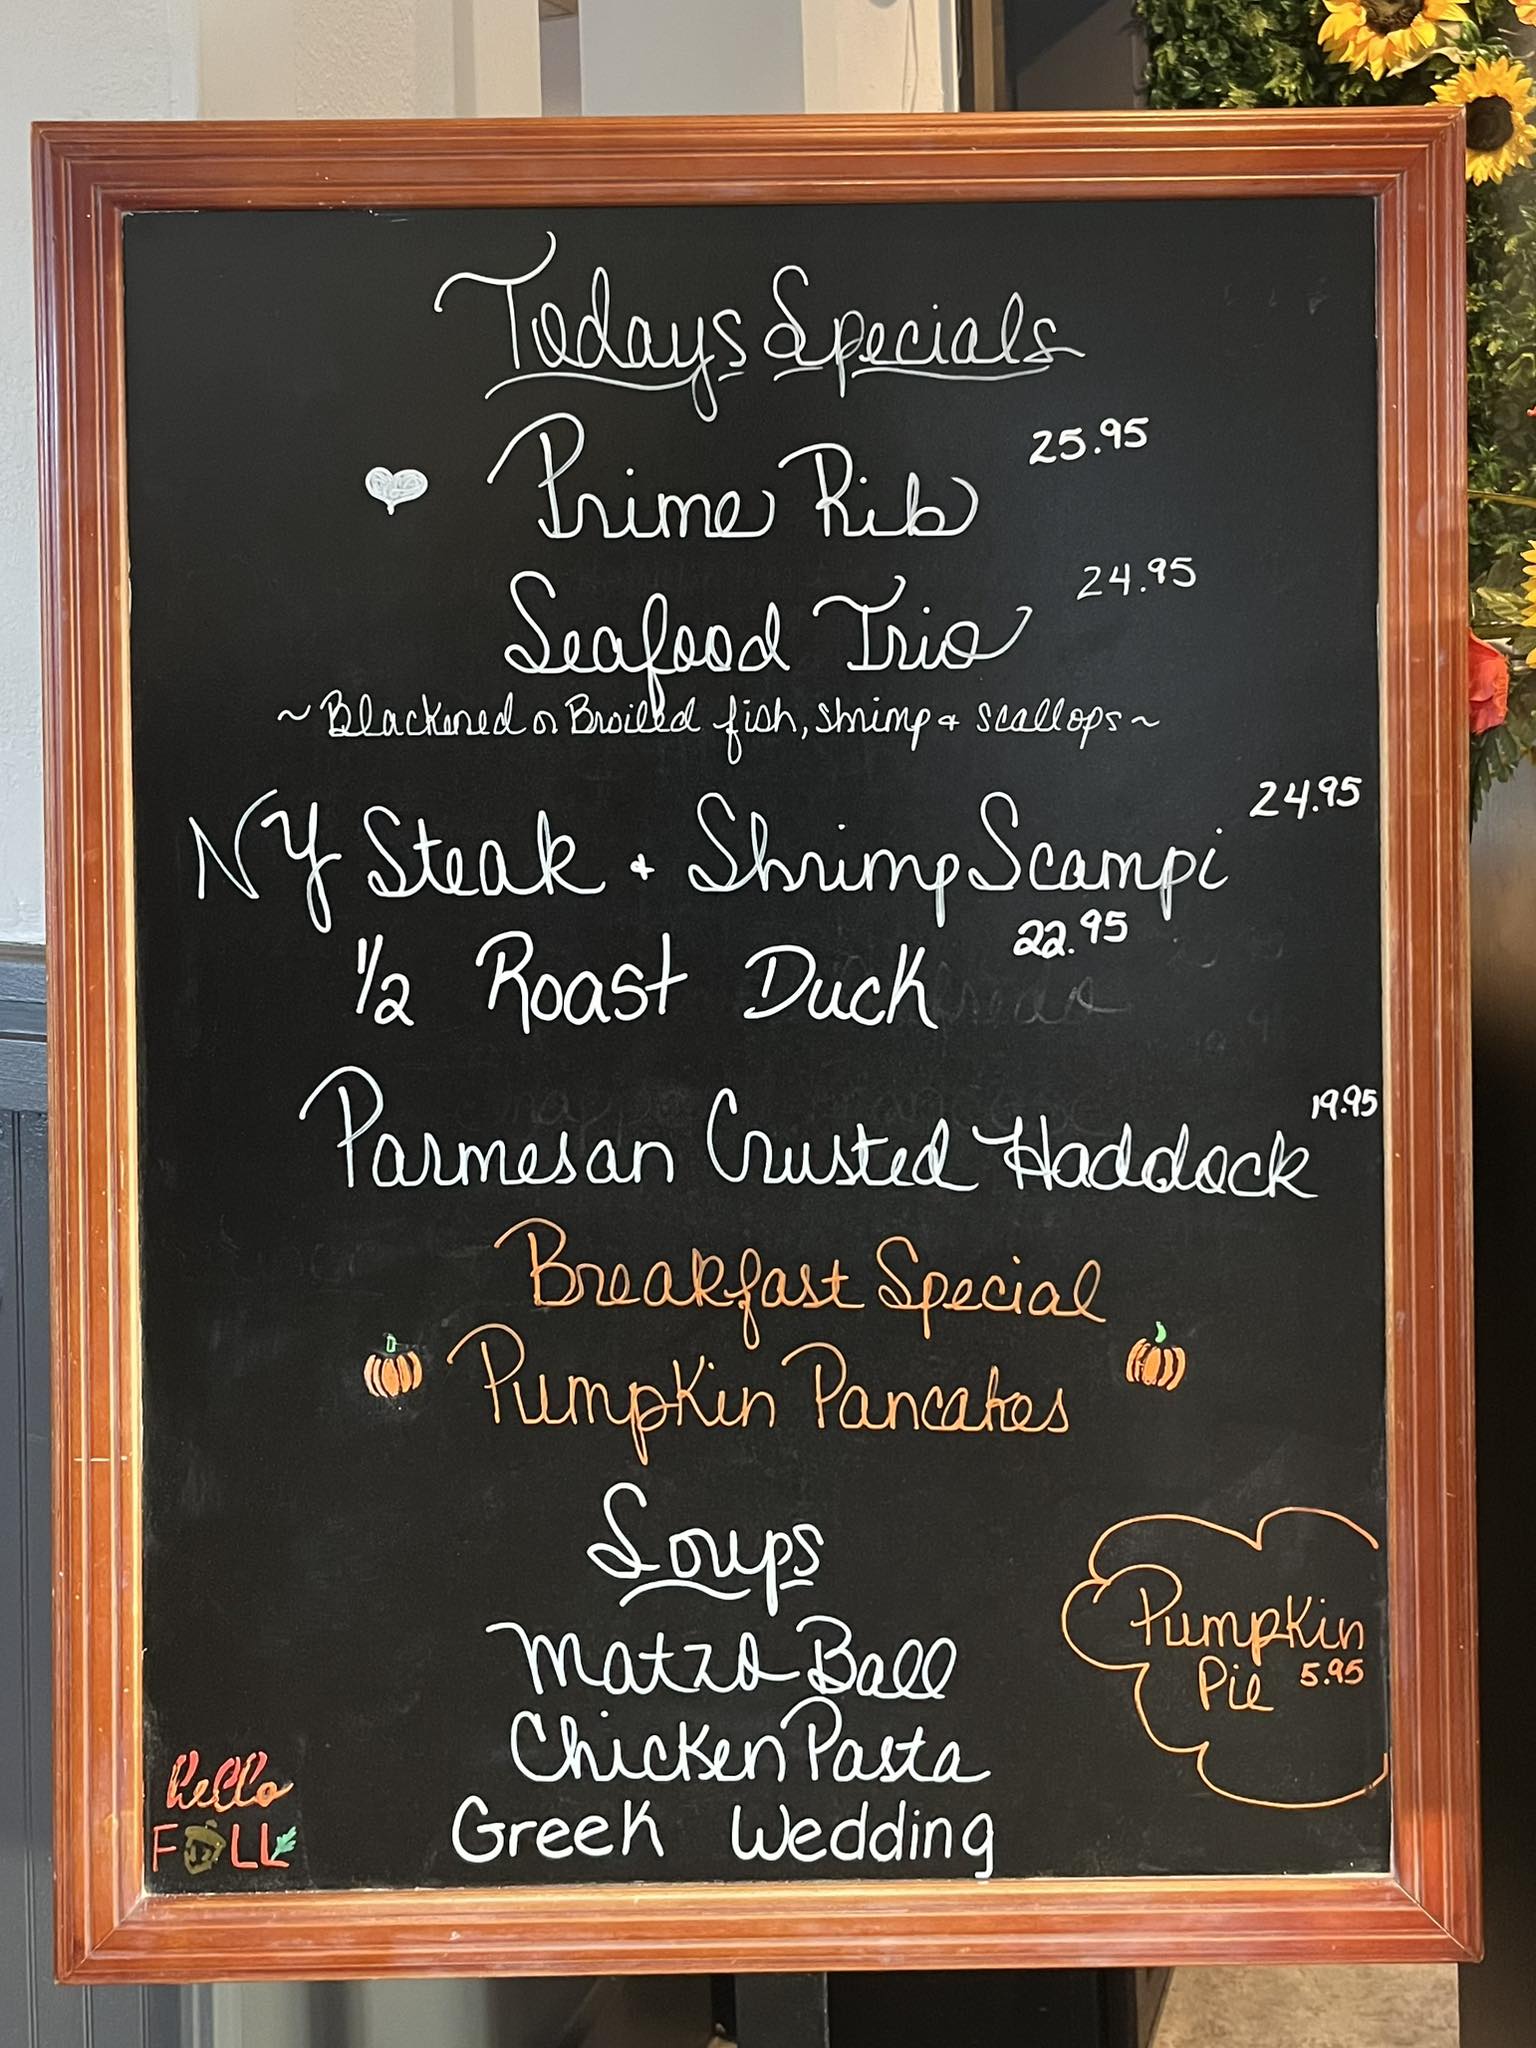 Todays Specials
Prime Rib 25.95
Seafood Trio 24.95
~Blackened or Broiled fish, shrimp + scallops~
NY Steak + Shrimp Scampi 24.95
1/2 Roast Duck 22.95
Parmesan Crusted Haddock 19.95
Breakfast Special
Pumpkin Pancakes
Soups
Matzo Ball
Chicken Pasta
Greek Wedding
Pumpkin
Pie 5.95
hello
FALL